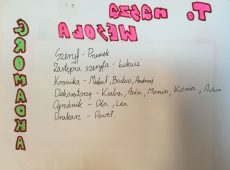 nasza
WESOŁA
GROMADKA
Szeryf -
Zastępca szeryfa - Łukasz
Kronika - Michał, Andrzej
Dekoratorzy - Kuba, Asia, Marcin, Kasia,
Ogrodnik - Ola, Lea
Drukarz - Paweł